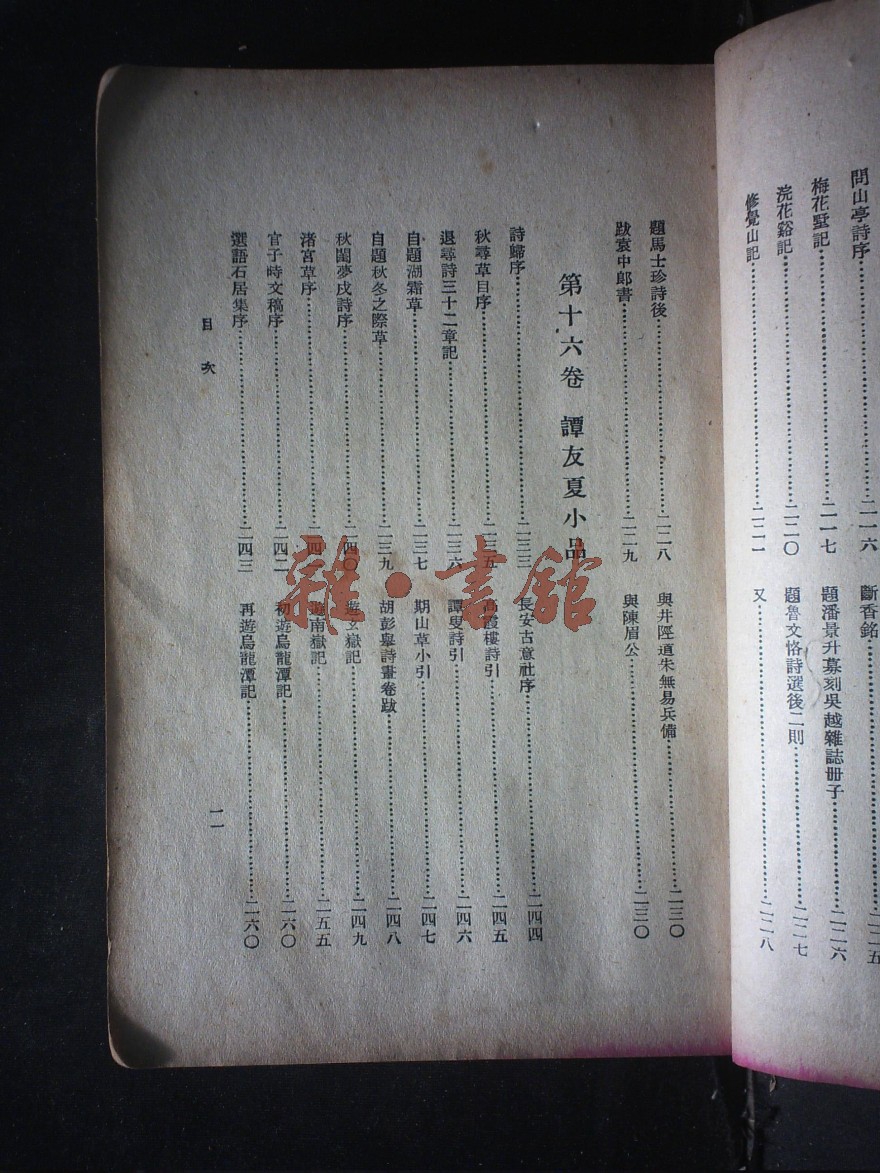 問山亭詩序……二一六
梅花墅記……二一七
浣花谿記……二二〇
修覺山記……二二一
斷香銘……二二五
題潘景升募刻吳越雜誌冊子……二二六
題魯文恪詩選後二則……二二七
又……二二八
題馬士珍詩後……二二八
跋袁中郎書……二二九
與井陘道朱無易兵備……二三〇
與陳眉公……二三〇
第十六卷 譚友夏小品
詩歸序……二三三
秋尋草目序……二三五
退尋詩三十二章記……二三六
自題湖霜草……二三七
自題秋冬之際草……二三九
秋閨夢戍詩序……二四〇
渚宮草序……二四
官子時文稿序……二四二
選語石居集序……二四三
長安古意社序……二四四
高霞樓詩引……二四五
譚叟詩引……二四六
期山草小引……二四七
胡彭舉詩畫卷跋……二四八
遊玄嶽記……二四九
遊南嶽記……二五五
初遊烏龍潭記……二六〇
再遊烏龍潭記……二六〇
目次
一一
雜·書館